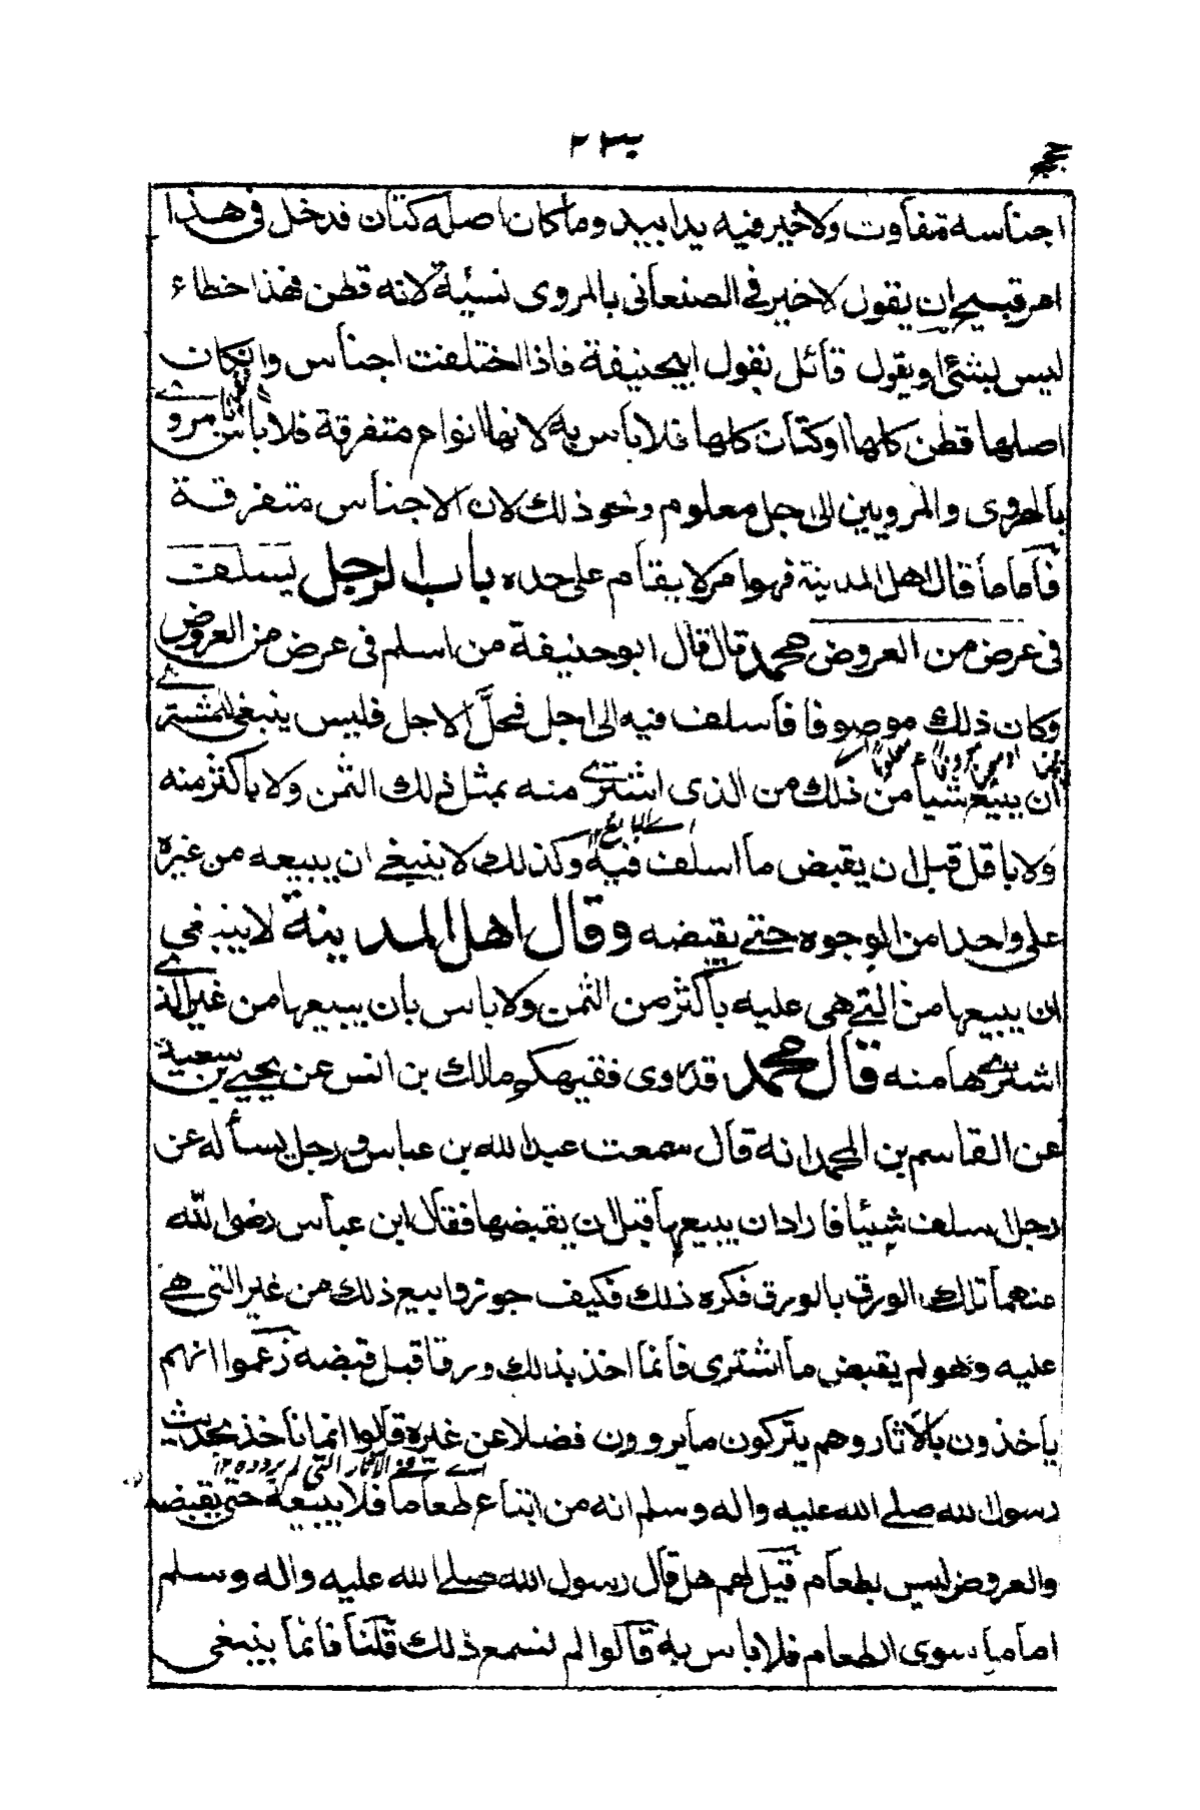 ٢٣٠
اجناسه متفاوت ولاخير فيه يدا بيد وما كان اصله كتان فدخل فى هذا
امر قبيح ان يقول لاخير فى الصنعانى بالمروى نسيئة لانه قطن فهذا خطاء
ليس بشئ او يقول قائل بقول ابيحنيفة فاذا اختلفت اجناس وانكان
اصلها قطن كلها اوكتان كلها فلا باس به لانها انواع متفرقة فلا باس مرو
بالهروى والمرويين الى اجل معلوم ونحو ذلك لان الاجناس متفرقة
فاما ما قال اهل المدينة فهو امر لا يقام على حده باب الرجل يسلف
فى عرض من العروض محمد قال قال ابو حنيفة من اسلم فى عرض من العروض
وكان ذلك موصوفا فاسلف فيه الى اجل فحل الاجل فليس ينبغى للمشترى
ان يبيع شيأ من ذلك من الذى اشترى منه بمثل ذلك الثمن ولا باكثر منه
اى البائع ١٢
ولا باقل قبل ان يقبض ما اسلف فيه وكذلك لا ينبغى ان يبيعه من غيره
على واحد من الوجوه حتى يقبضه وقال اهل المدينة لا ينبغى
ان يبيعها من التى هى عليه باكثر من الثمن ولا باس بان يبيعها من غير الذى
اشتراها منه قال محمد قد روى فقيهكم مالك بن انس عن يحيى بن سعيد
عن القاسم بن المحمد انه قال سمعت عبد الله بن عباس ورجل يسأله عن
رجل سلف شيئا فاراد ان يبيعها قبل ان يقبضها فقال ابن عباس رضى الله
عنهما تلك الورق بالورق فكره ذلك فكيف جوزوا بيع ذلك من غير التى هى
عليه وهو لم يقبض ما اشترى فانما اخذ بذلك ورقا قبل قبضه زعموا انهم
ياخذون بالاثار وهم يتركون ما يروون فضلا عن غيره قالوا انما ناخذ بحديث
رسول الله صلى الله عليه واله وسلم انه من ابتاع طعاما فلا يبيعه حتى يقبضه
والعروض ليس بطعام قيل لهم هل قال رسول الله صلى الله عليه واله وسلم
اما ما سوى الطعام فلا باس به قالوا لم نسمع ذلك قلنا فانما ينبغى